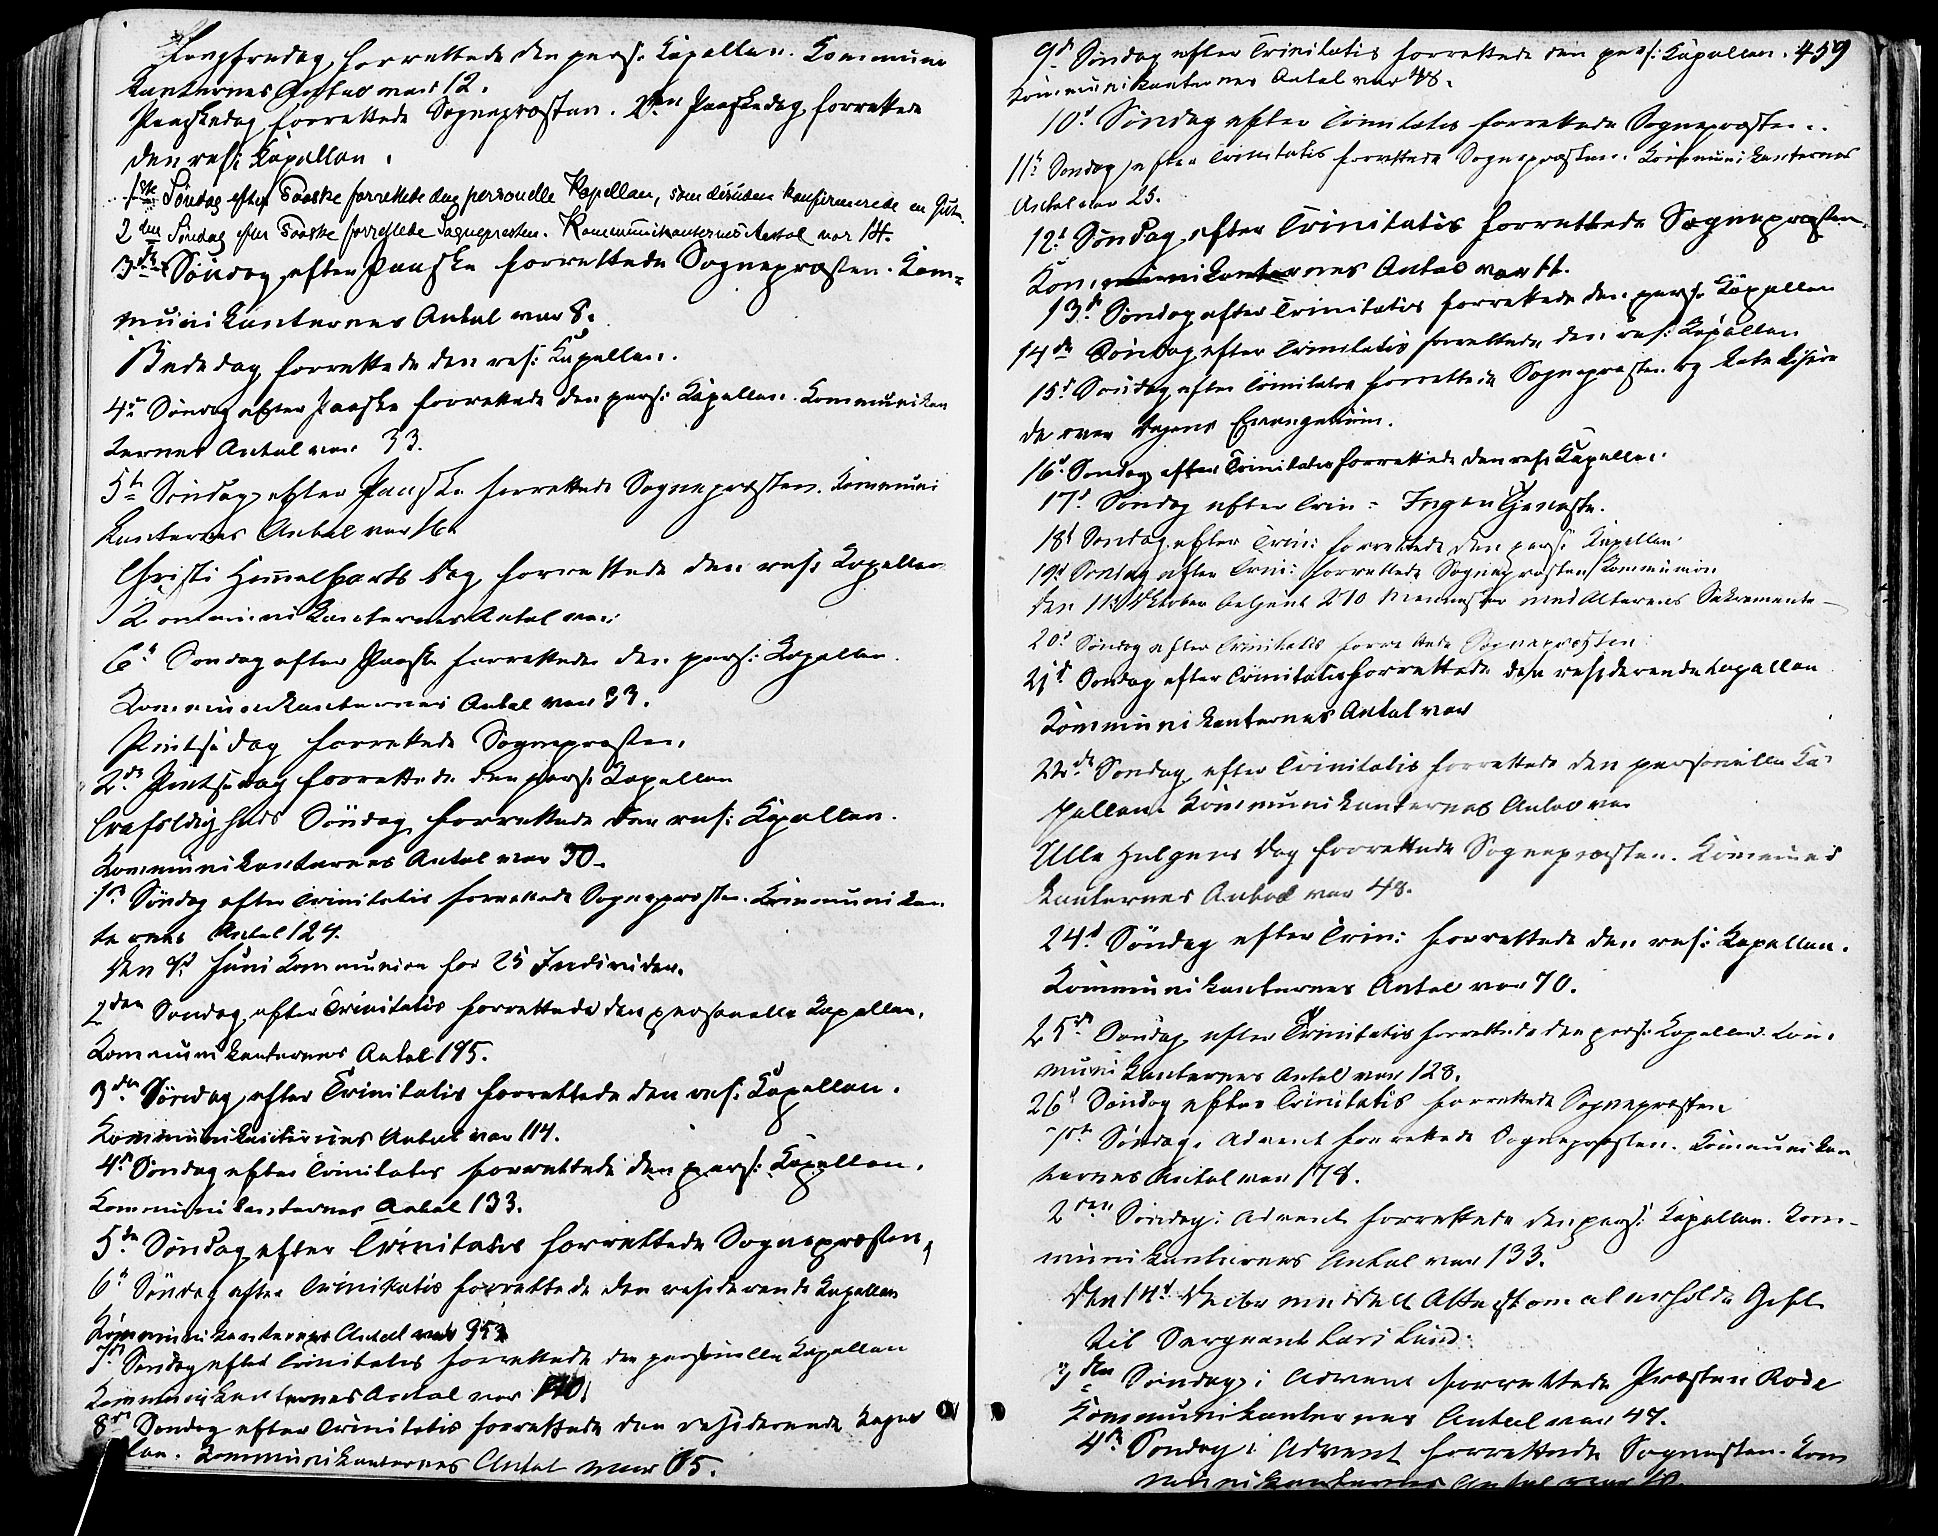 Langfredag forrettede den pers: Kapellan. Kommuni
kanternes Antal var 12.
Paaskedag forrettede Sognepræsten. 2den Paaskedag forrettede
den res: Kapellan.
1ste Søndag efter Paaske forrettede den personelle Kapellan, som desuden konfirmerede en
2den Søndag efter Paaske forrettede Sognepresten. Kommunikanternes Antal var 14.
3die Søndag efter Paaske forrettede Sognepræsten. Kom=
munikanternes Antal var 8.
Bededag forrettede den res: Kapellan.
4de Søndag efter Paaske forrettede den pers: Kapellan. Kommunikan
ternes Antal var 33.
5te Søndag efter Paaske forrettede Sognepræsten. Kommuni
kanternes Antal var 16.
Christi Himmelfarts Dag forrettede den res: Kapellan
Kommunikanternes Antal var
6te Søndag efter Paaske forrettede den pers: Kapellan.
Kommunikanternes Antal var 33.
Pintsedag forrettede Sognepræsten.
2den Pintsedag forrettede den pers: Kapellan
Trefoldigheds Søndag forrettede den res: Kapellan.
Kommunikanternes Antal var 30.
1ste Søndag efter Trinitatis forrettede Sognepræsten. Kommunikan
ternes Antal 124.
Den Juni Kommunion for 25 Individer.
2den Søndag efter Trinitatis forrettede den personelle Kapellan.
Kommunikanternes Antal 195.
3die Søndag efter Trinitatis forrettede den res: Kapellan.
Kommunikanternes Antal var 114.
4de Søndag efter Trinitatis forrettede den pers: Kapellan.
Kommunikanternes Antal 133.
5te Søndag efter Trinitatis forrettede Sognepræsten.
6te Søndag efter Trinitatis forrettede den residerende Kapellan
Kommunikanternes Antal var
7de Søndag efter Trinitatis forrettede den personelle Kapellan
Kommunikanternes Antal var 110.
8de Søndag efter Trinitatis forrettede den residerende Kapel
lan. Kommunikanternes Antal var 65.
9de Søndag efter Trinitatis forrettede den pers: Kapellan. 459
Kommunikanternes Antal var 48.
10de Søndag efter Trinitatis forrettede Sognepræsten.
11te Søndag efter Trinitatis forrettede Sognepræsten. Kommunikanternes
Antal var 25.
12te Søndag efter Trinitatis forrettede Sognepræsten.
Kommunikanternes Antal var 11.
13de Søndag efter Trinitatis forrettede den pers: Kapellan
14de Søndag efter Trinitatis forrettede den res: Kapellan
15de Søndag efter Trinitatis forrettede Sognepræsten og katekisere
de over Dagens Evangelium.
16de Søndag efter Trinitatis forrettede den res: Kapellan.
17de Søndag efter Trin: Ingen Tjeneste.
18de Søndag efter Trin: forrettede den pers: Kapellan.
19de Søndag efter Trin: forrettede Sognepræsten Kommunion
den 11te Oktober betjent 270 Mennesker med Alterens Sakramente
20de Søndag efter Trinitatis forrettede Sognepræsten
21de Søndag efter Trinitatis forrettede den residerende Kapellan
Kommunikanternes Antal var
22de Søndag efter Trinitatis forrettede den personelle Ka=
pellan. Kommunikanternes Antal var
Alle Helgens Dag forrettede Sognepræsten. Kommuni
kanternes Antal var 48.
24de Søndag efter Trin: forrettede den res: Kapellan.
Kommunikanternes Antal var 70.
25de Søndag efter Trinitatis forrettede den pers: Kapellan. Kom=
munikanternes Antal var 128.
26de Søndag efter Trinitatis forrettede Sognepræsten
1ste Søndag i Advent forrettede Sognepræsten. Kommunikan
ternes Antal var 178.
2den Søndag i Advent forrettede den pers: Kapellan. Kom=
munikanternes Antal var 133.
Den 14de Decbr meddelt Attest om at erholde Gift
til Sergeant Lars Lund.
3die Søndag i Advent forrettede Præsten Rode
Kommunikanternes Antal var 47.
4de Søndag i Advent forrettede Sognepresten. Kom
munikanternes Antal var